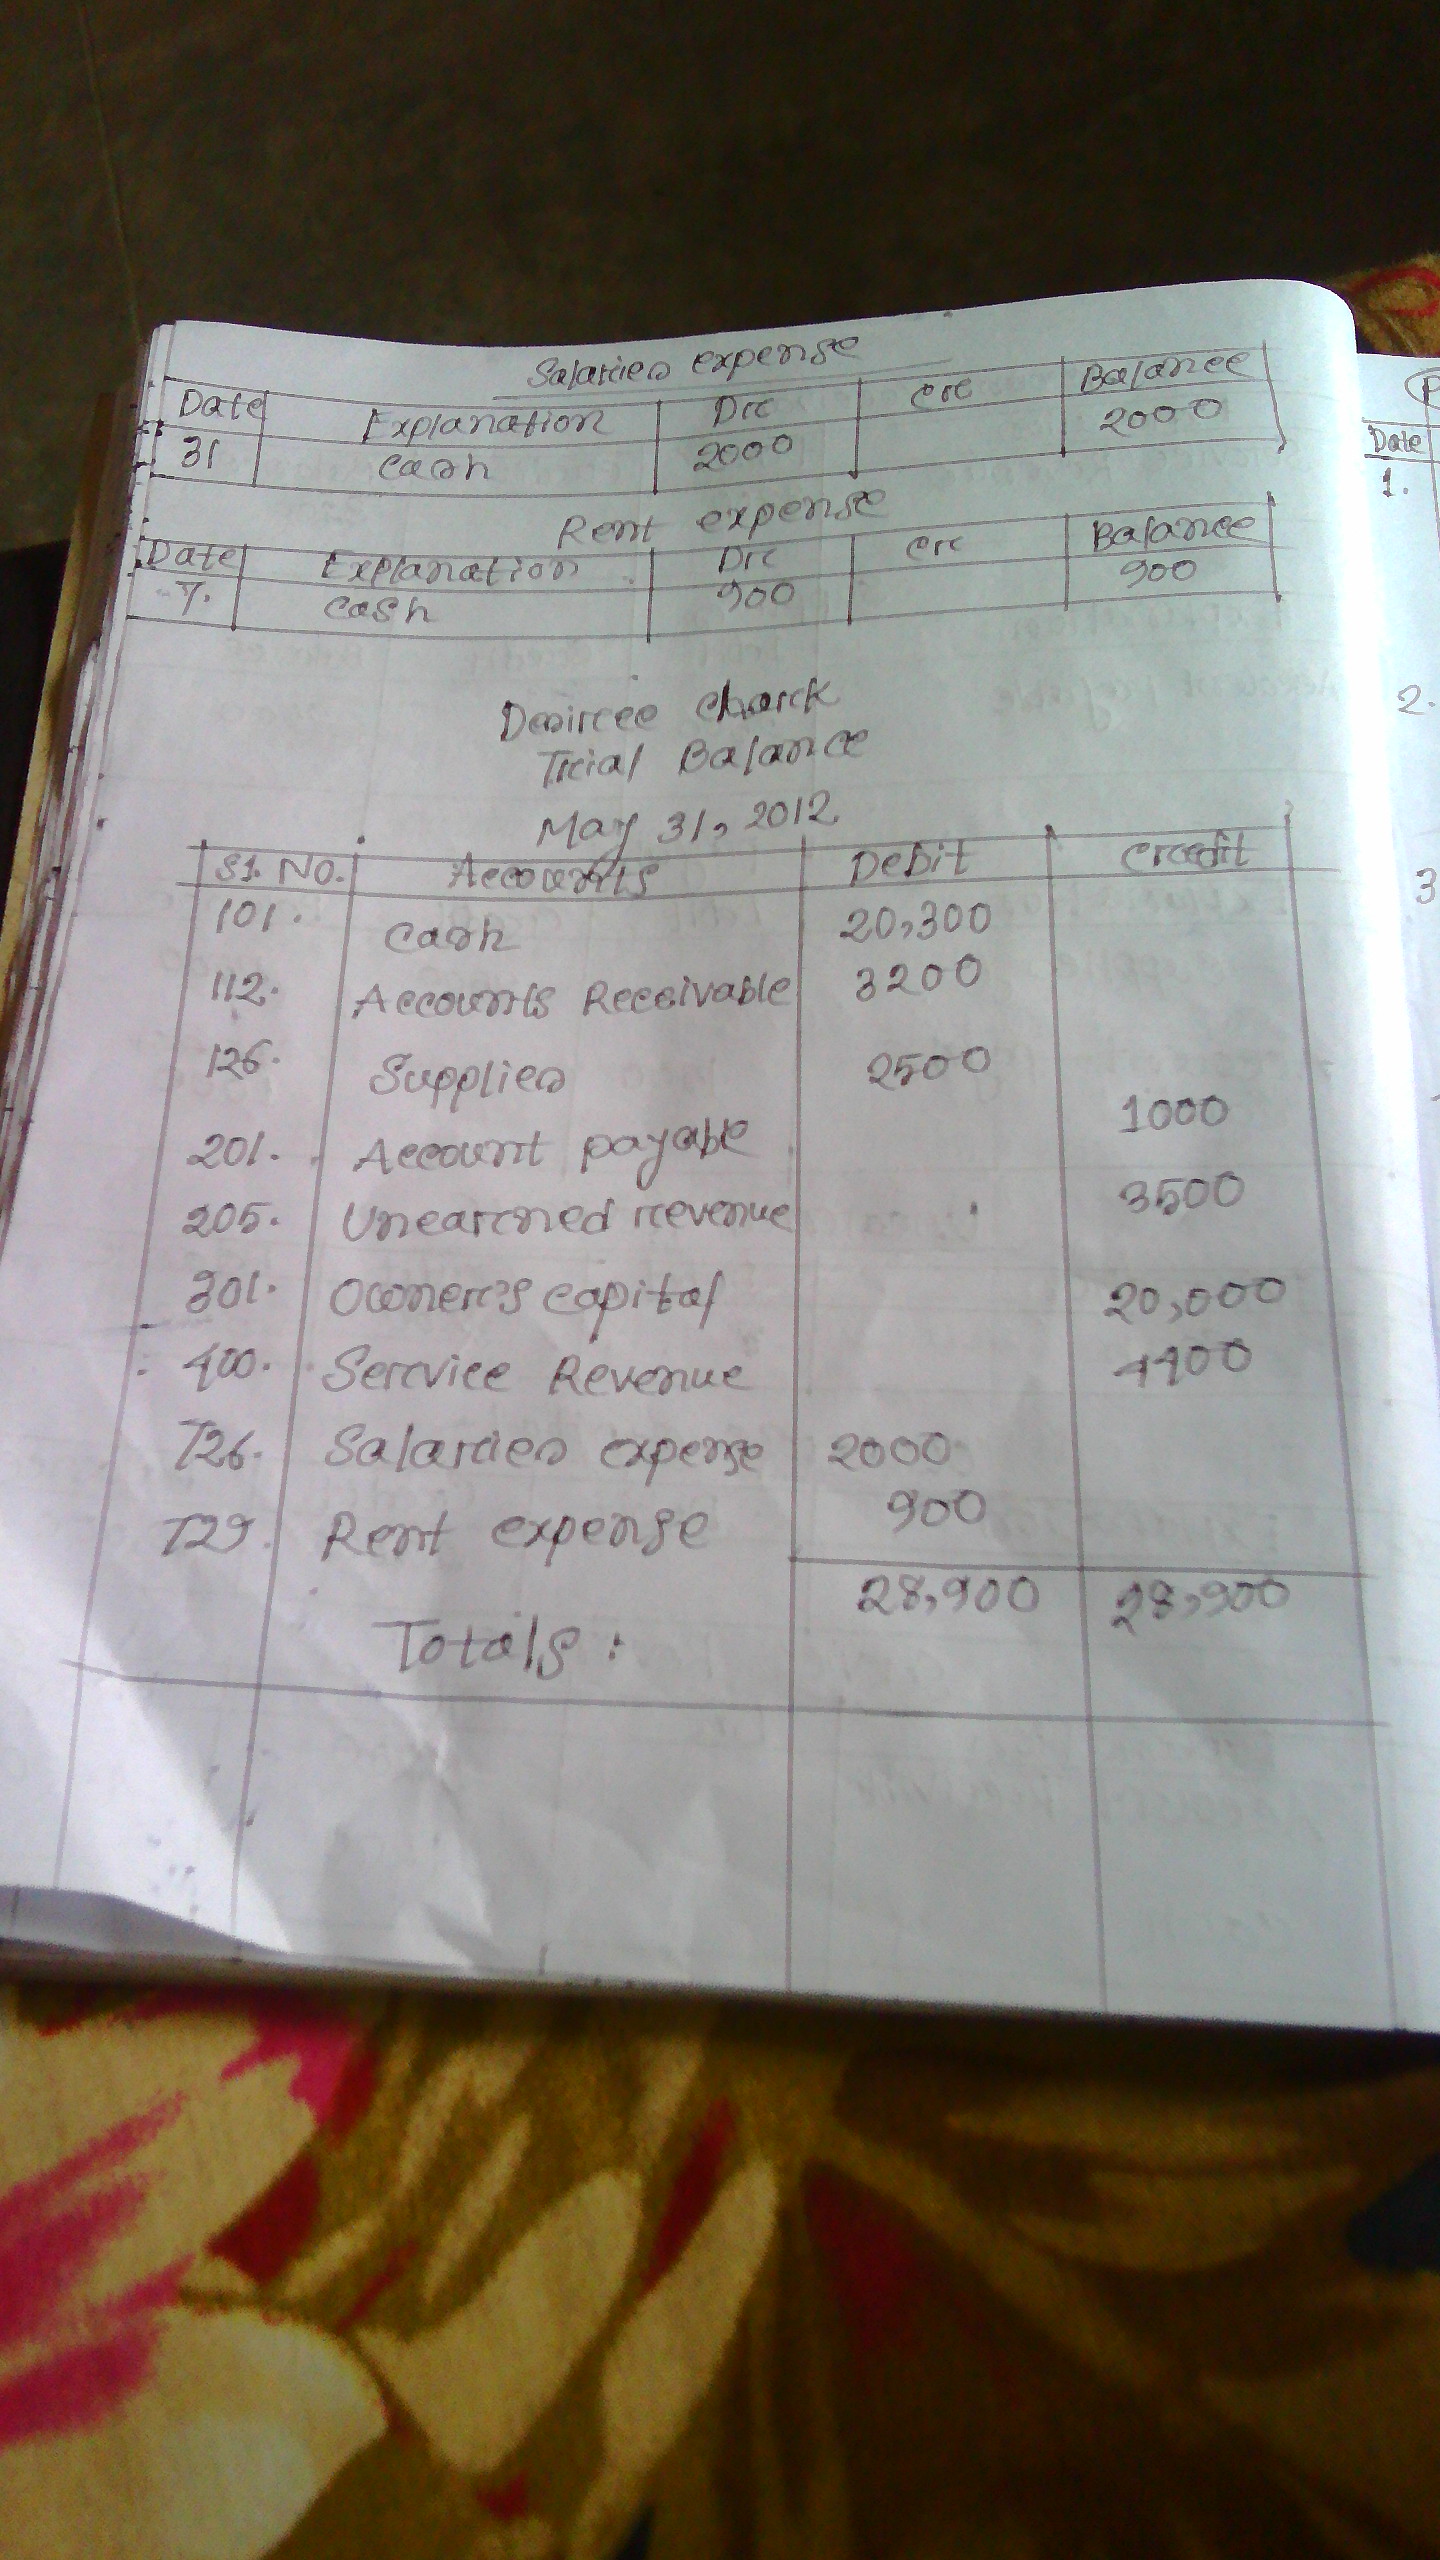 Salaries expense
Date Explanation Dr Cr Balance
31 Cash 2000 2000
Rent expense
Date Explanation Dr Cr Balance
7. Cash 900 900
Desiree Clark
Trial Balance
May 31, 2012
Sl. No. Accounts Debit Credit
101. Cash 20,300
112. Accounts Receivable 3200
126. Supplies 2500
201. Account payable 1000
205. Unearned revenue 3500
301. Owner's capital 20,000
400. Service Revenue 4400
726. Salaries expense 2000
729. Rent expense 900
Totals : 28,900 28,900
Date
1.
2.
3